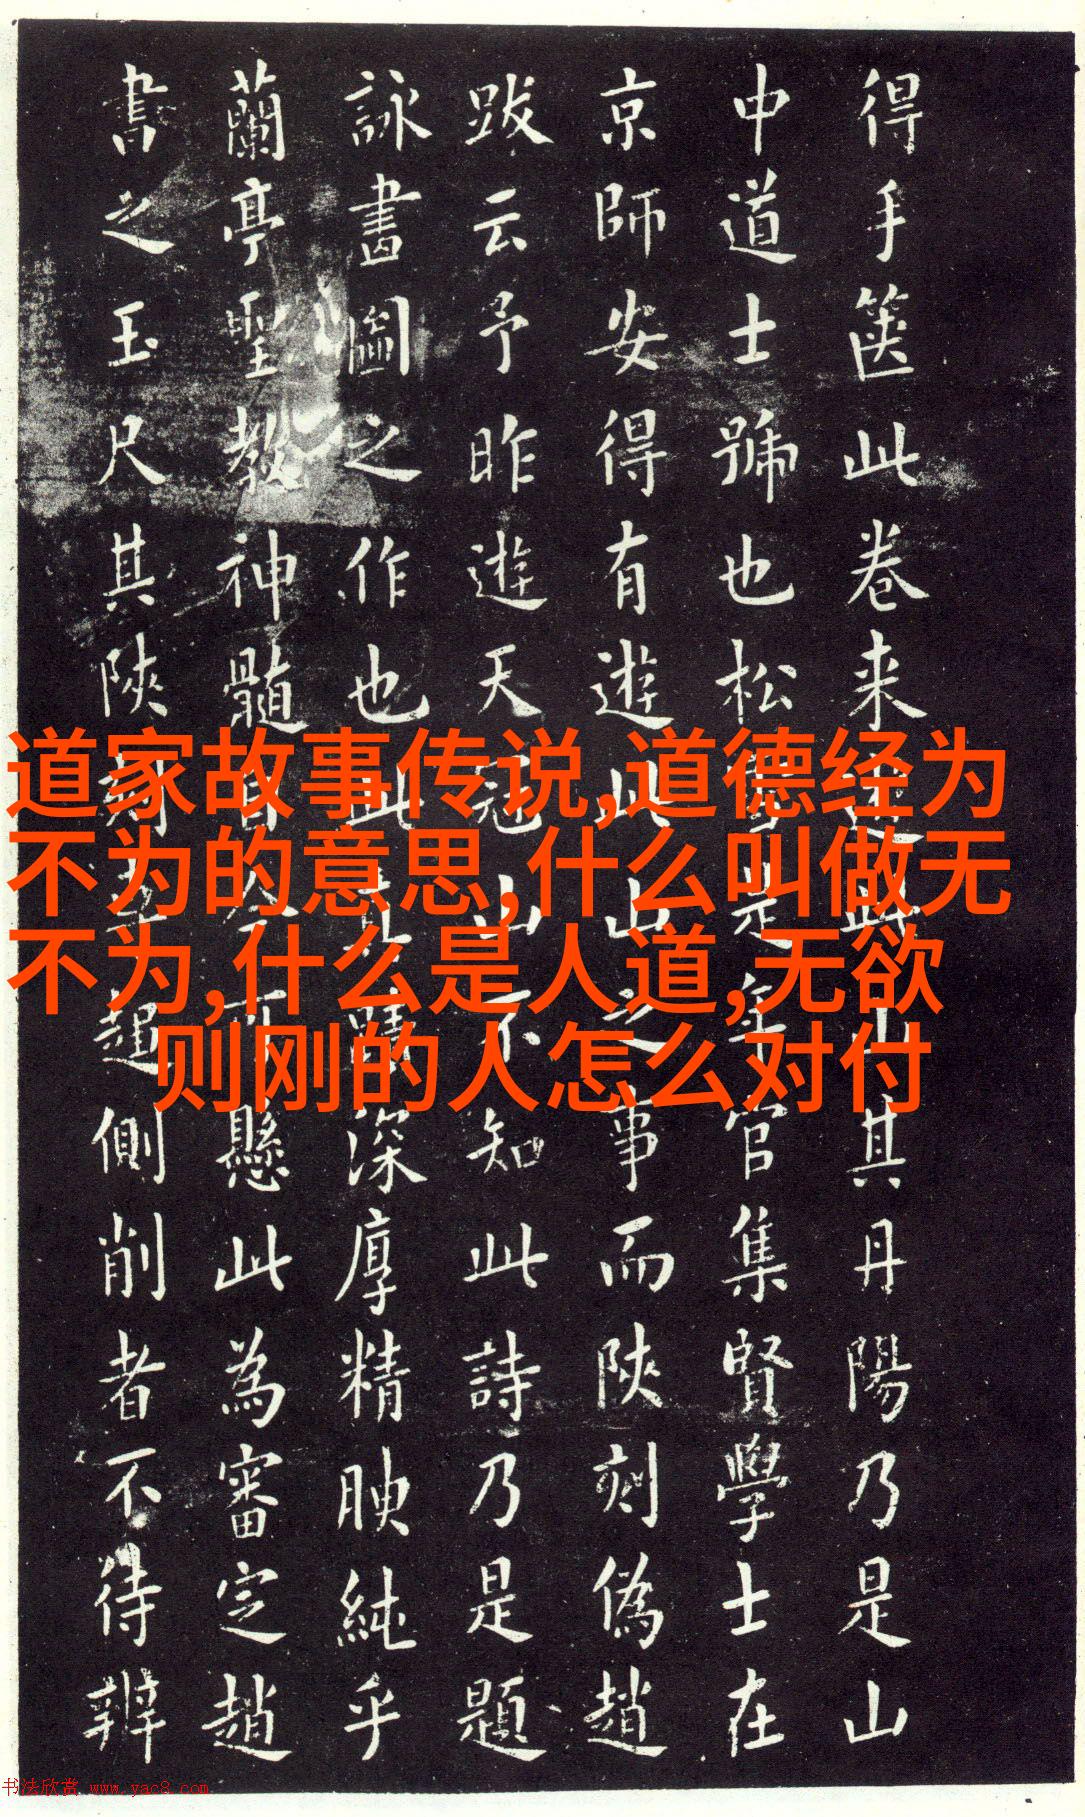 得手箧此卷来山其丹陽乃是山
中道士號也松是年官集賢學士在
京師安得有遊此山之事而陝刻偽趙
跋云予昨遊天冠山不知此詩乃是題
詠書圖之作也此蹟深厚精腴純乎
蘭亭聖教神髓可懸此為審定趙
書之玉尺其陝側削者不待辨
道家故事传说,道德经为
不为的意思,什么叫做无
不为,什么是人道,无欲
则刚的人怎么对付
书法欣赏 www.yac8.com